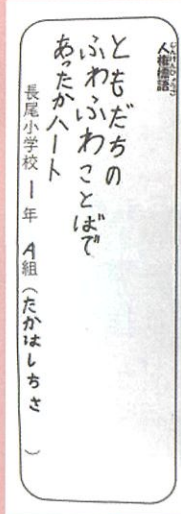 人権標語
じんけんひょうご
ともだちの
ふわふわことばで
あったかハート
長尾小学校 1年 A組(たかはしちさ)